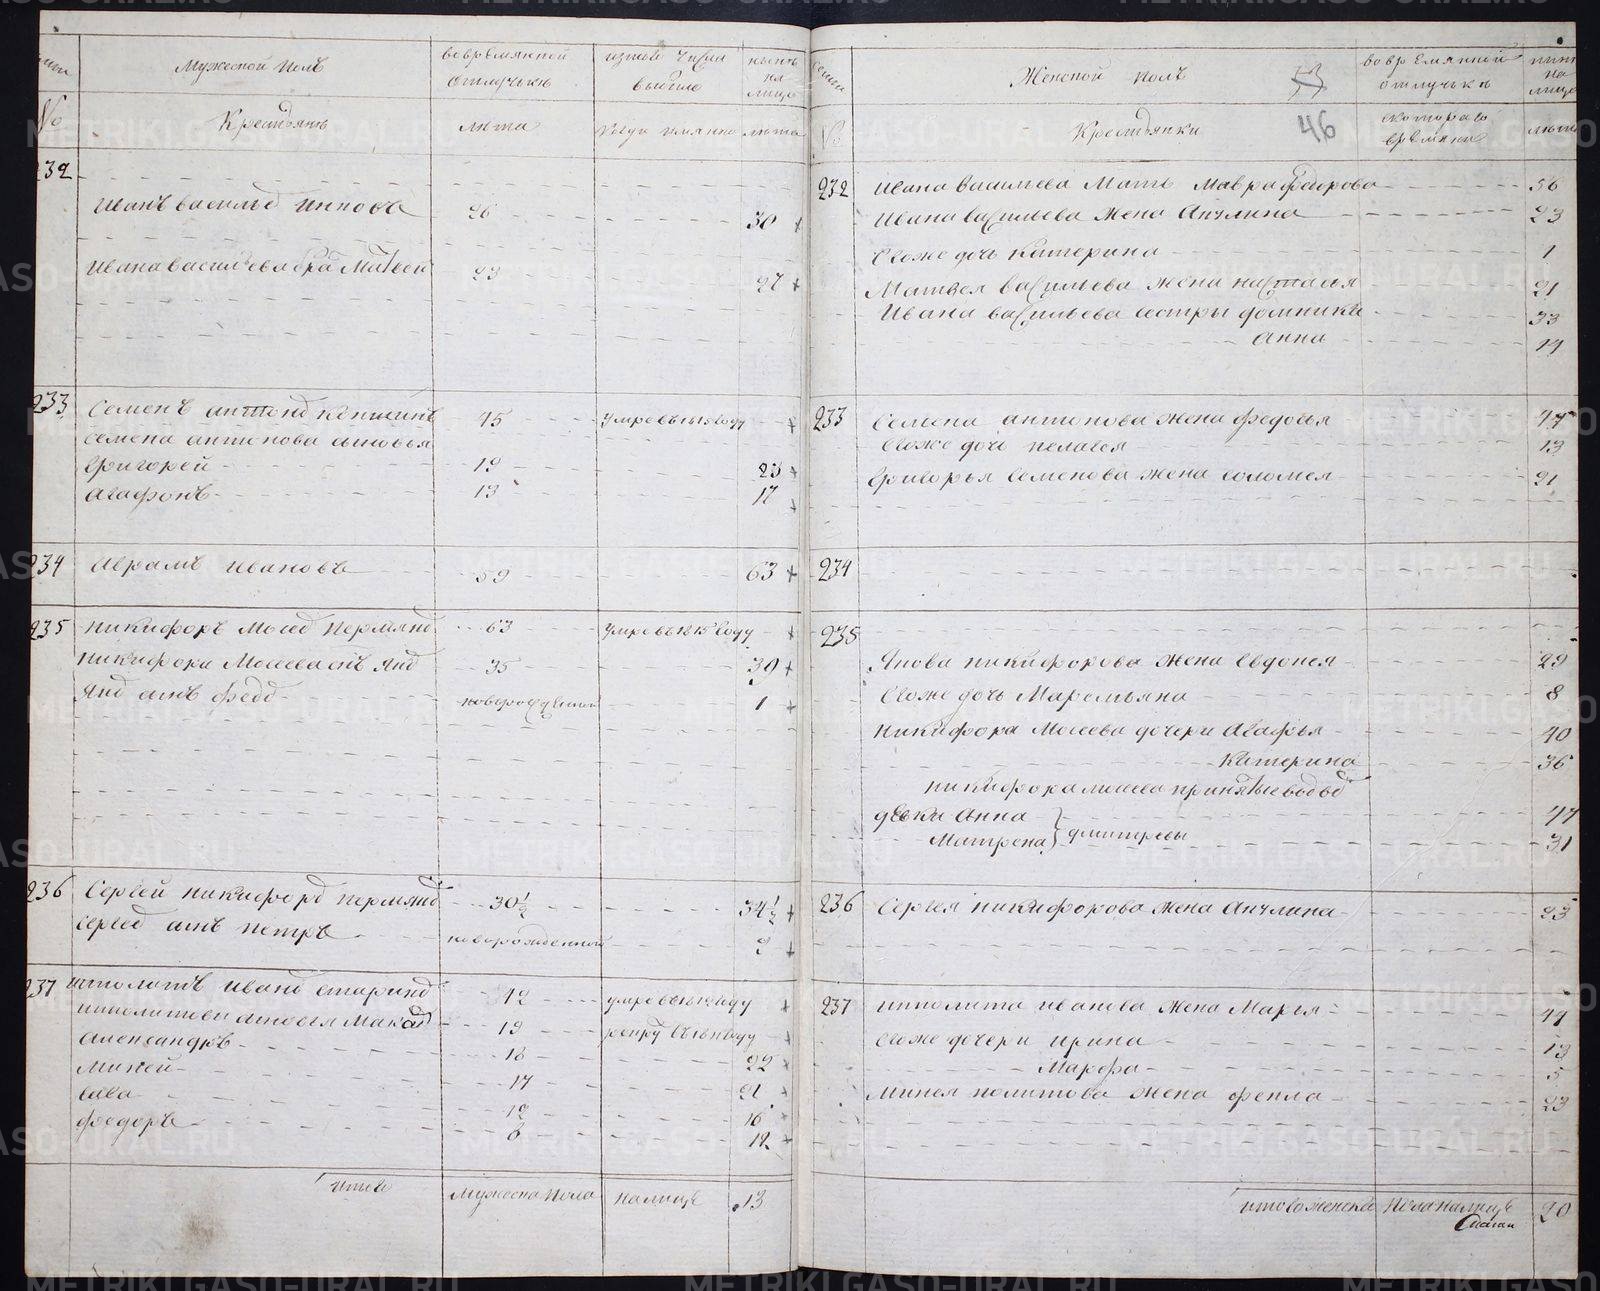 Мужеской полъ
во времянной отлучькѣ
изтого числа выбыло
нынѣ на лицо
№
Крестьянъ
лѣта
когда имянно
лѣта
232
Иванъ васильевъ
26
30
Ивана васильева братъ Матвей
23
27
233
Семенъ антоновъ
45
умре въ 1815 году
Семена антонова сыновья
Григорей
19
23
Агафонъ
13
17
234
Аврамъ Ивановъ
59
63
235
Никифоръ Мосеевъ Пермяковъ
63
умре въ 1815 году
Никифора Мосеева сынъ Яковъ
35
39
Якова сынъ Федоръ
новорожденной
1
236
Сергей Никифоровъ Пермяковъ
30½
34½
Сергеевъ сынъ Петръ
новорожденной
2
237
Ипполитъ Ивановъ
42
Ипполитовы сыновья Макаръ
19
Александръ
18
22
Миней
17
21
Сава
12
16
Федоръ
8
12
Итого
мужеска пола
налицо
13
Женской полъ
во времянной отлучькѣ
нынѣ на лицо
№
Крестьянки
46
скотораго времяни
лѣта
232
Ивана васильева Мать Мавра федорова
56
Ивана васильева жена Акулина
23
Ево же дочь Катерина
1
Матвея васильева жена настасья
21
Ивана васильева сестры домника
33
Анна
19
233
Семена антонова жена федосья
47
Ево же дочь пелагея
13
Григорья Семенова жена соломея
21
234
235
Якова никифорова жена Евдокея
29
Ево же дочь Маремьяна
8
Никифора Мосеева дочери Агафья
40
Катерина
36
никифора мосеева
девки Анна
47
Матрена
дмитревы
31
236
Сергея никифорова жена Акулина
23
237
ипполита иванова жена Марья
44
Ево же дочери ирина
13
Марфа
5
Минея политова жена фекла
23
итого женска
пола налицо
20
METRIKI.GASO-URAL.RU